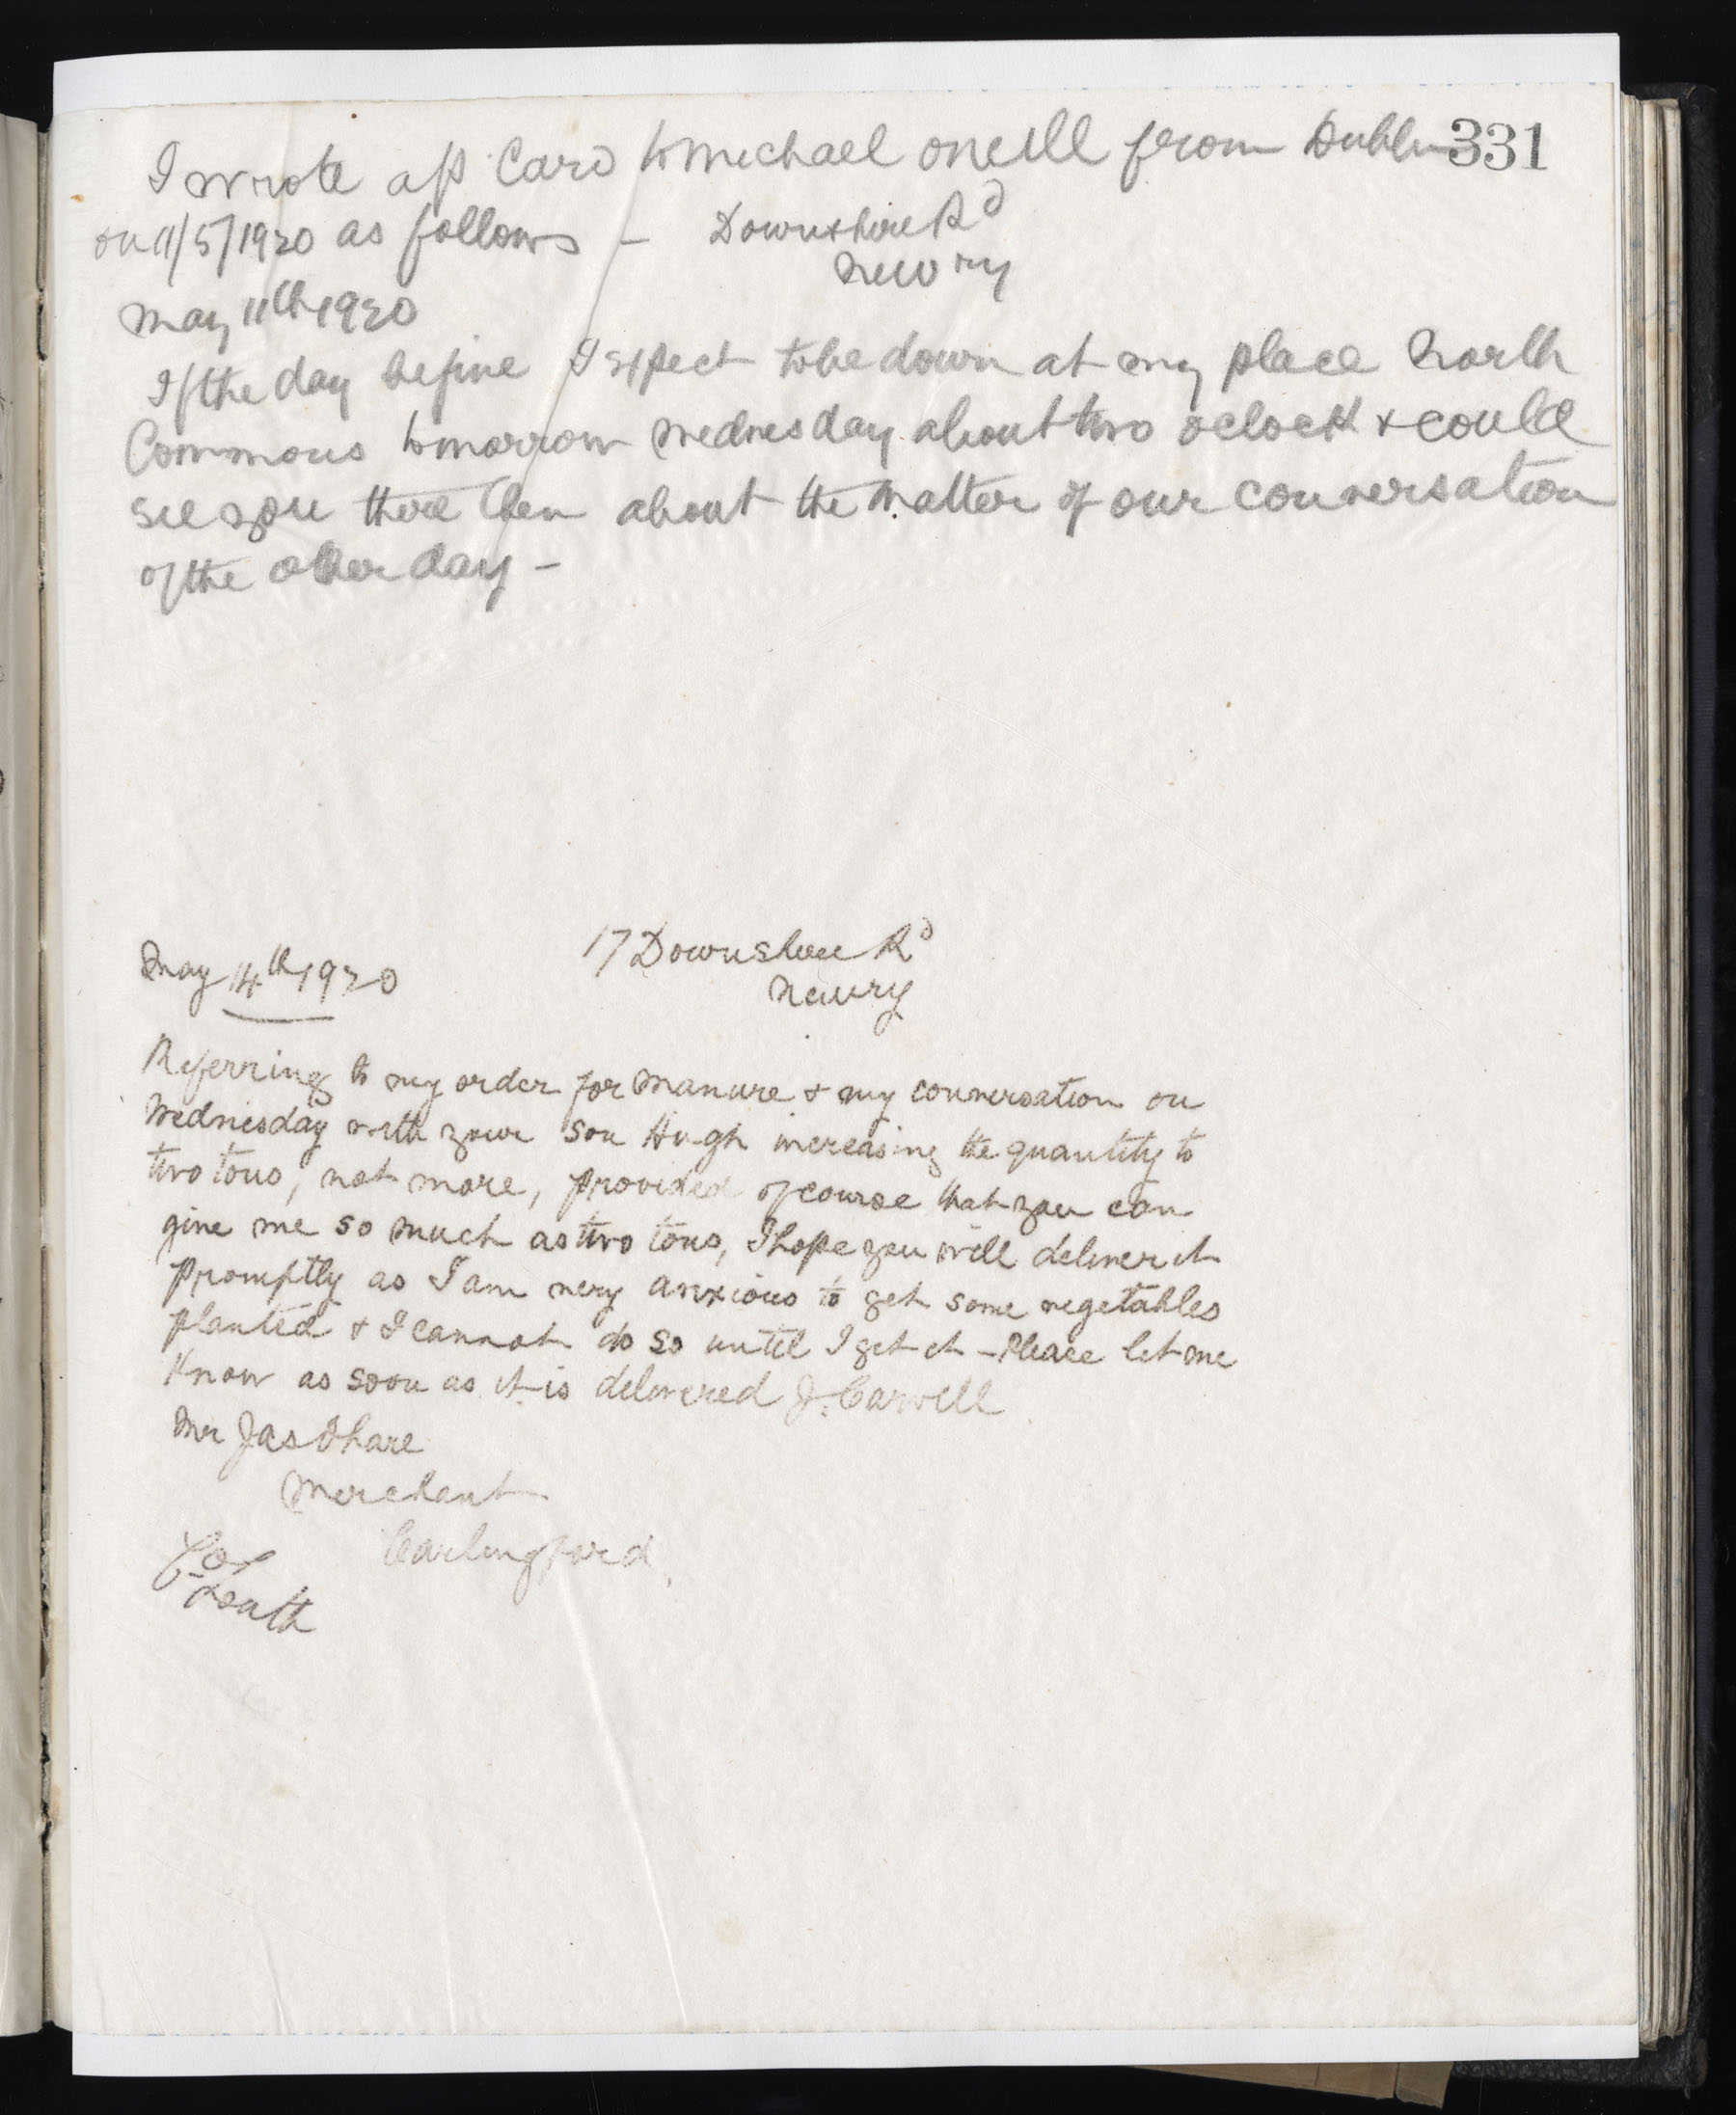 331
I wrote a p Card to Michael oneill from Dublin
on 11/5/1920 as follows - Downshire Rd
Newry
May 11th 1920
If the day be fine I expect to be down at my place North
Commons tomorrow Wednesday about two oclock & could
see you there then about the matter of our conversation
of the other day -
May 14th 1920 17 Downshire Rd
Newry
Referring to my order for Manure & my conversation on
Wednesday with your son Hugh increasing the quantity to
two tons, not more, provided of course that you can
give me so much as two tons, I hope you will deliver it
promptly as I am very anxious to get some vegetables
planted & I cannot do so until I get it - Please let me
know as soon as it is delivered J. Carvill
Mr Jas Ohare
Merchant
Carlingford
Co/
Louth